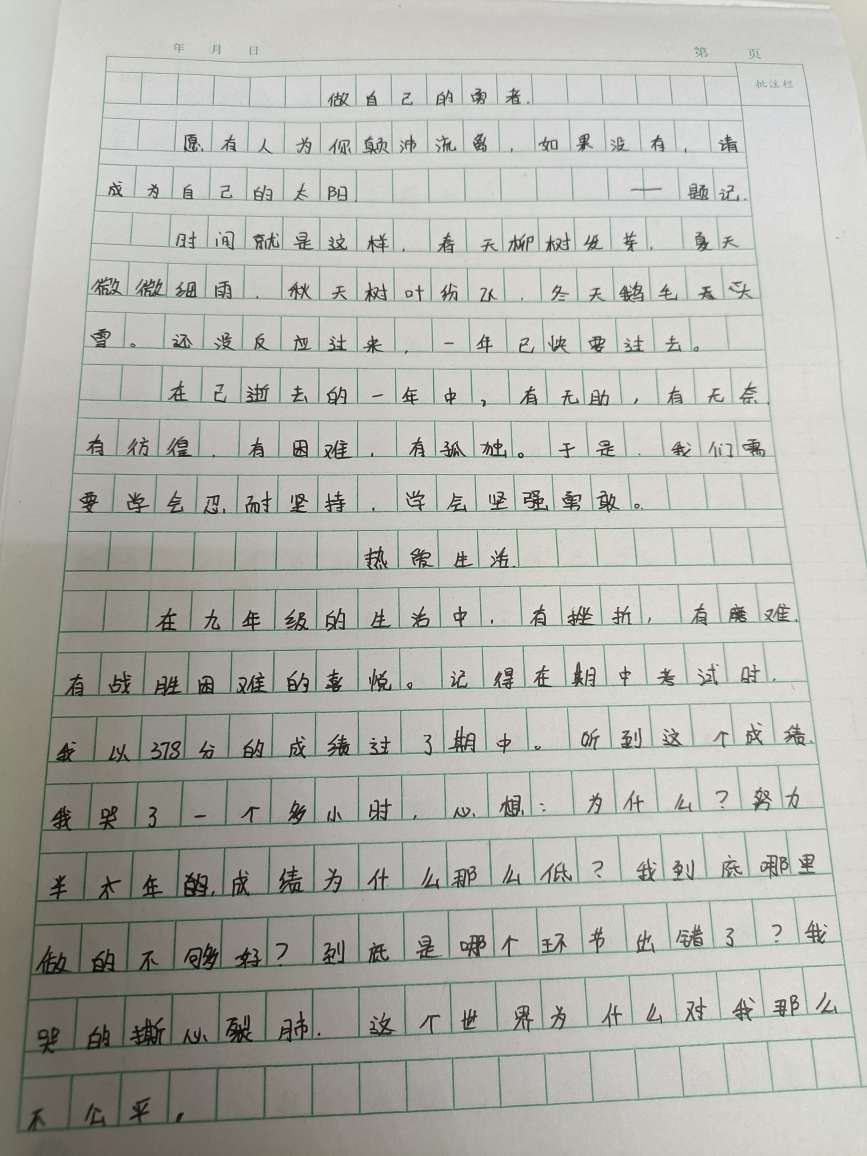 年 月 日 第 页
批注栏
做自己的勇者.
愿有人为你颠沛流离,如果没有,请
成为自己的太阳 ——题记.
时间就是这样,春天柳树发芽,夏天
微微细雨,秋天树叶纷飞,冬天鹅毛大
雪。还没反应过来,一年已快要过去。
在已逝去的一年中,有无助,有无奈,
有彷徨,有困难,有孤独。于是,我们需
要学会忍耐坚持,学会坚强勇敢。
热爱生活.
在九年级的生活中,有挫折,有磨难,
有战胜困难的喜悦。记得在期中考试时,
我以378分的成绩过了期中。听到这个成绩,
我哭了一个多小时,心想:为什么?努力
半大年的,成绩为什么那么低?我到底哪里
做的不够好?到底是哪个环节出错了?我
哭的撕心裂肺.这个世界为什么对我那么
不公平。